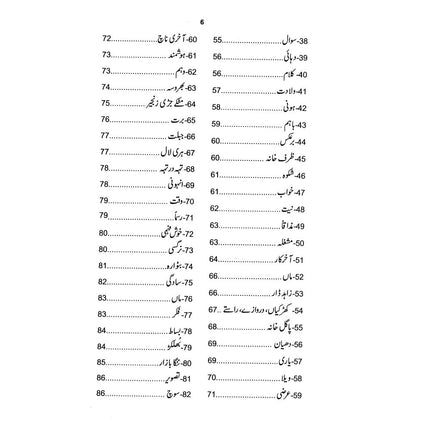 6
38-سوال ..............55
39-دہائی ..............56
40-کلام ..............56
41-ولادت ..............57
42-ہونی ..............58
43-باہم ..............59
44-برعکس ..............60
45-ظرف خانہ ..............60
46-شکوہ ..............61
47-خواب ..............61
48-نیت ..............62
49-مذاقاً ..............63
50-مشغلہ ..............63
51-آخرکار ..............64
52-ماں ..............66
53-زاہد ڈار ..............66
54-کھڑکیاں، دروازے، راستے ..67
55-پاگل خانہ ..............68
56-دھیان ..............69
57-یاری ..............69
58-ویلا ..............70
59-عرضی ..............71
60-آخری ناچ ..............72
61-ہوشمند ..............73
62-وہم ..............73
63-بھروسہ ..............74
64-جڑی زنجیر ..............75
65-برت ..............76
66-جبلت ..............77
67-ہری لال ..............77
68-تہہ در تہہ ..............78
69-انہونی ..............78
70-وقت ..............79
71-رسا ..............79
72-خوش فہمی ..............80
73-نرگسی ..............80
74-بٹوارہ ..............81
75-سادگی ..............82
76-ماں ..............83
77-فکر ..............83
78-بساط ..............84
79-بھلکڑ ..............84
80-ننگا بازار ..............85
81-تصویر ..............86
82-سوچ ..............86